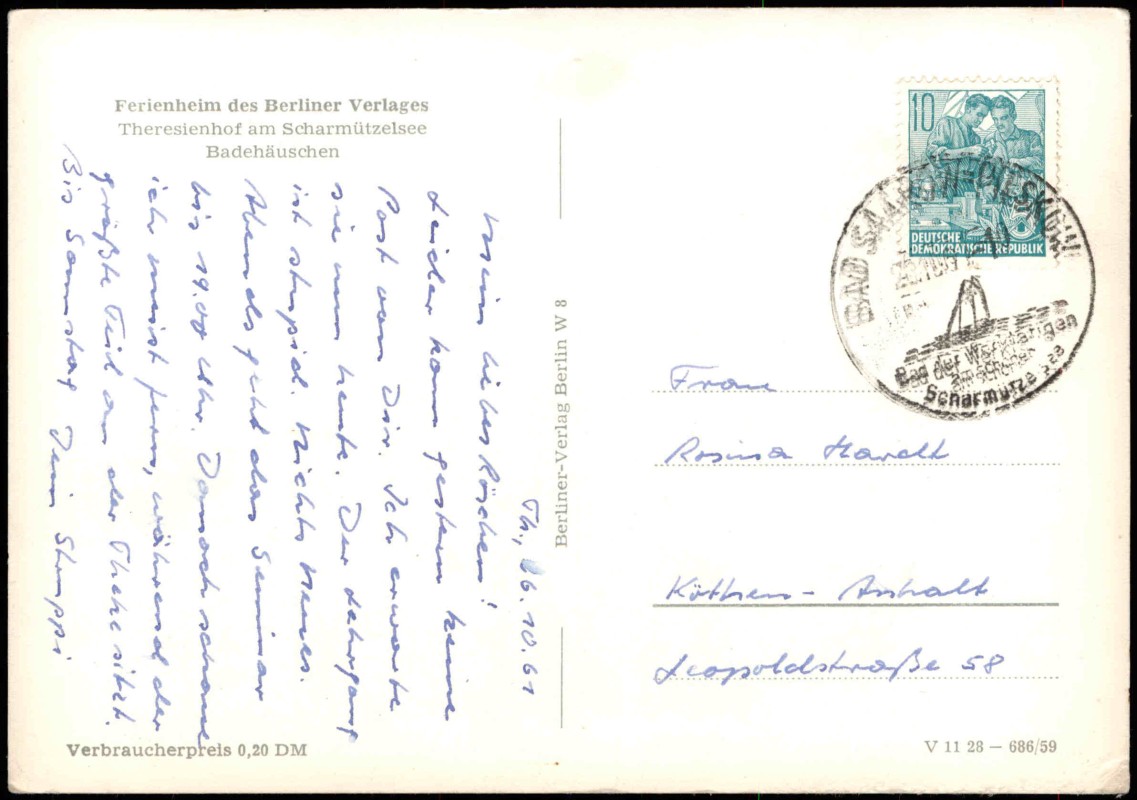 Ferienheim des Berliner Verlages
Theresienhof am Scharmützelsee
Badehäuschen
Th., 26.10.61
Mein liebes Röschen!
Leider kam gestern keine
Post von Dir. Ich erwarte
sie nun heute. Der Lehrgang
ist stupid. Nichts Neues.
Abends geht das Seminar
bis 19.00 Uhr. Danach schaue
ich meist fern, während der
größte Teil an der Theke sitzt.
Bis Samstag Dein Struppi
Verbraucherpreis 0,20 DM
Berliner-Verlag Berlin W 8
10
DEUTSCHE
DEMOKRATISCHE REPUBLIK
BAD SAAROW-PIESKOW
Bad der Werktätigen
am
Scharmütze
Frau
Rosina Havelt
Köthen-Anhalt
Leopoldstraße 58
V 11 28 — 686/59